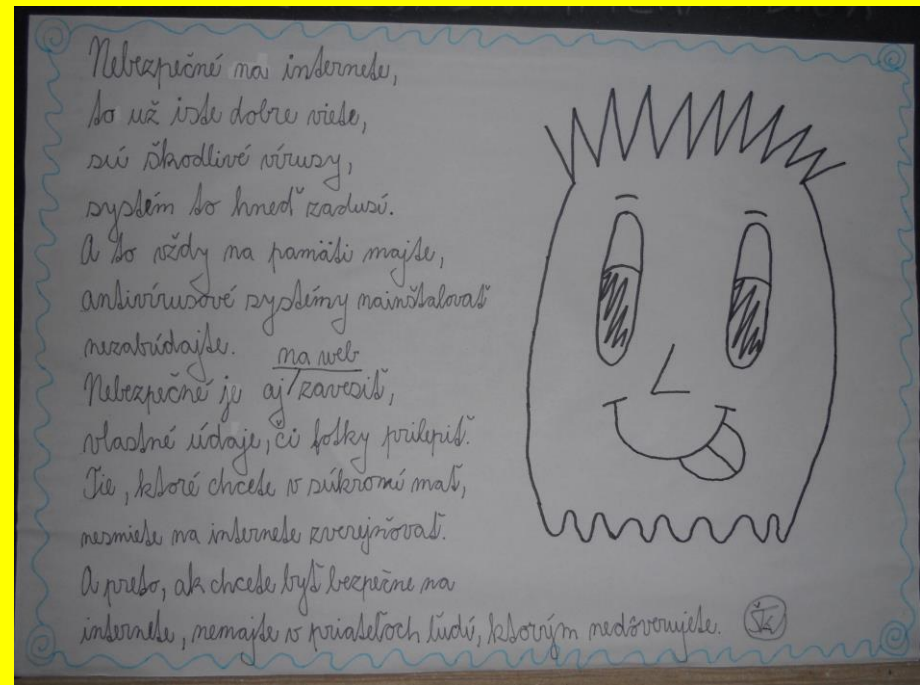 Nebezpečné na internete,
to už iste dobre viete,
sú škodlivé vírusy,
systém to hneď zadusí.
A to vždy na pamäti majte,
antivírusové systémy nainštalovať
nezabúdajte.
na web
Nebezpečné je aj zavesiť,
vlastné údaje, či fotky prilepiť.
Tie, ktoré chcete v súkromí mať,
nesmiete na internete zverejňovať.
A preto, ak chcete byť bezpečne na
internete, nemajte v priateľoch ľudí, ktorým nedôverujete.